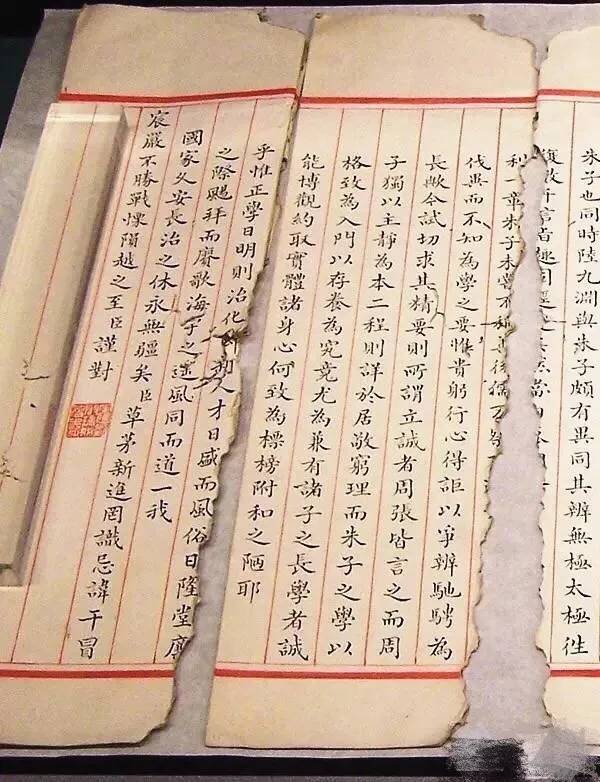 朱子也同時陸九淵與朱子頗有異同其辨無極太極往
復數千言
利一章朱子未嘗不稱善後儒
伐異而不知為學之要惟貴躬行心得詎以爭辨馳騁為
長歟今試切求其精要則所謂立誠者周張皆言之而周
子獨以主靜為本二程則詳於居敬窮理而朱子之學以
格致為入門以存養為究竟尤為兼有諸子之長學者誠
能博觀約取實體諸身心何致為標榜附和之陋耶
乎惟正學日明則治化人才日盛而風俗日隆堂廉
之際颺拜而賡歌海宇之遙風同而道一我
國家久安長治之休永無疆矣臣草茅新進罔識忌諱干冒
宸嚴不勝戰慄隕越之至臣謹對